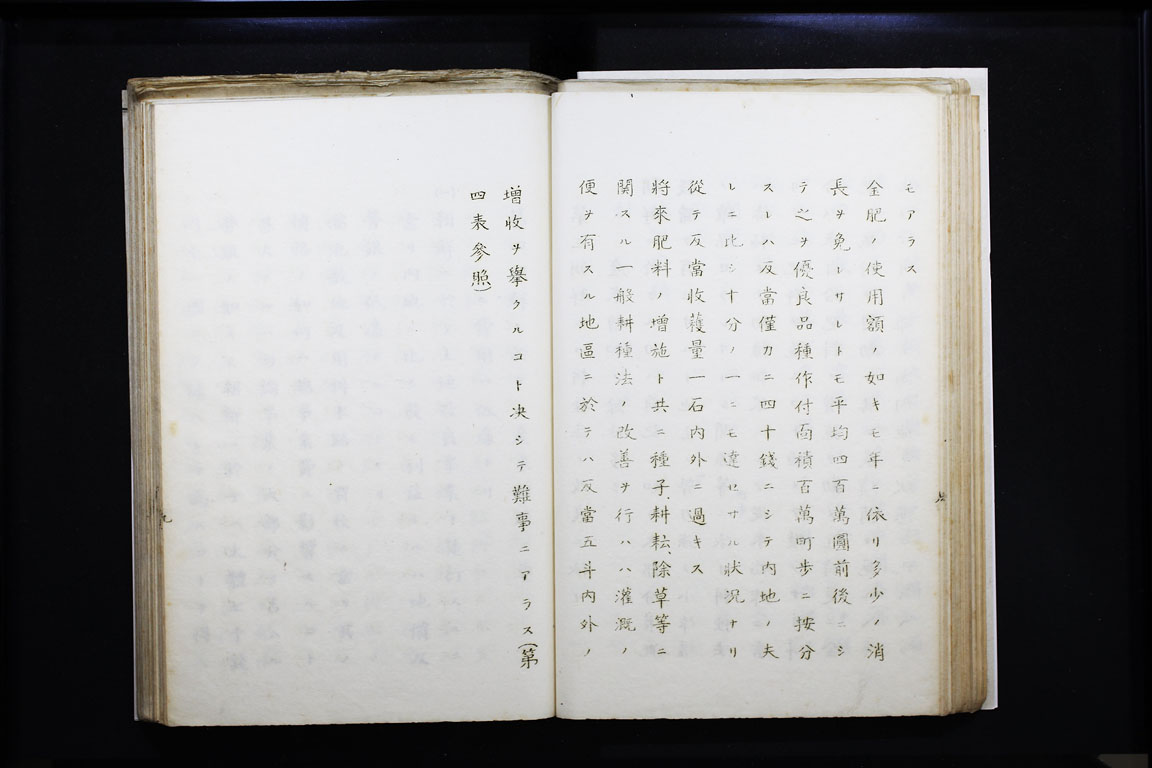 モアラス
金肥ノ使用額ノ如キモ年ニ依リ多少ノ消
長ヲ免レサレトモ平均四百萬圓前後ニシ
テ之ヲ優良品種作付面積百萬町歩ニ按分
スレハ反當僅カニ四十錢ニシテ内地ノ夫
レニ比シ十分ノ一ニモ達セサル狀況ナリ
從テ反當收穫量一石内外ニ過キス
將來肥料ノ增施ト共ニ種子、耕耘、除草等ニ
關スル一般耕種法ノ改善ヲ行ハハ灌漑ノ
便ヲ有スル地區ニ於テハ反當五斗内外ノ
增收ヲ擧クルコト决シテ難事ニアラス(第
四表參照)